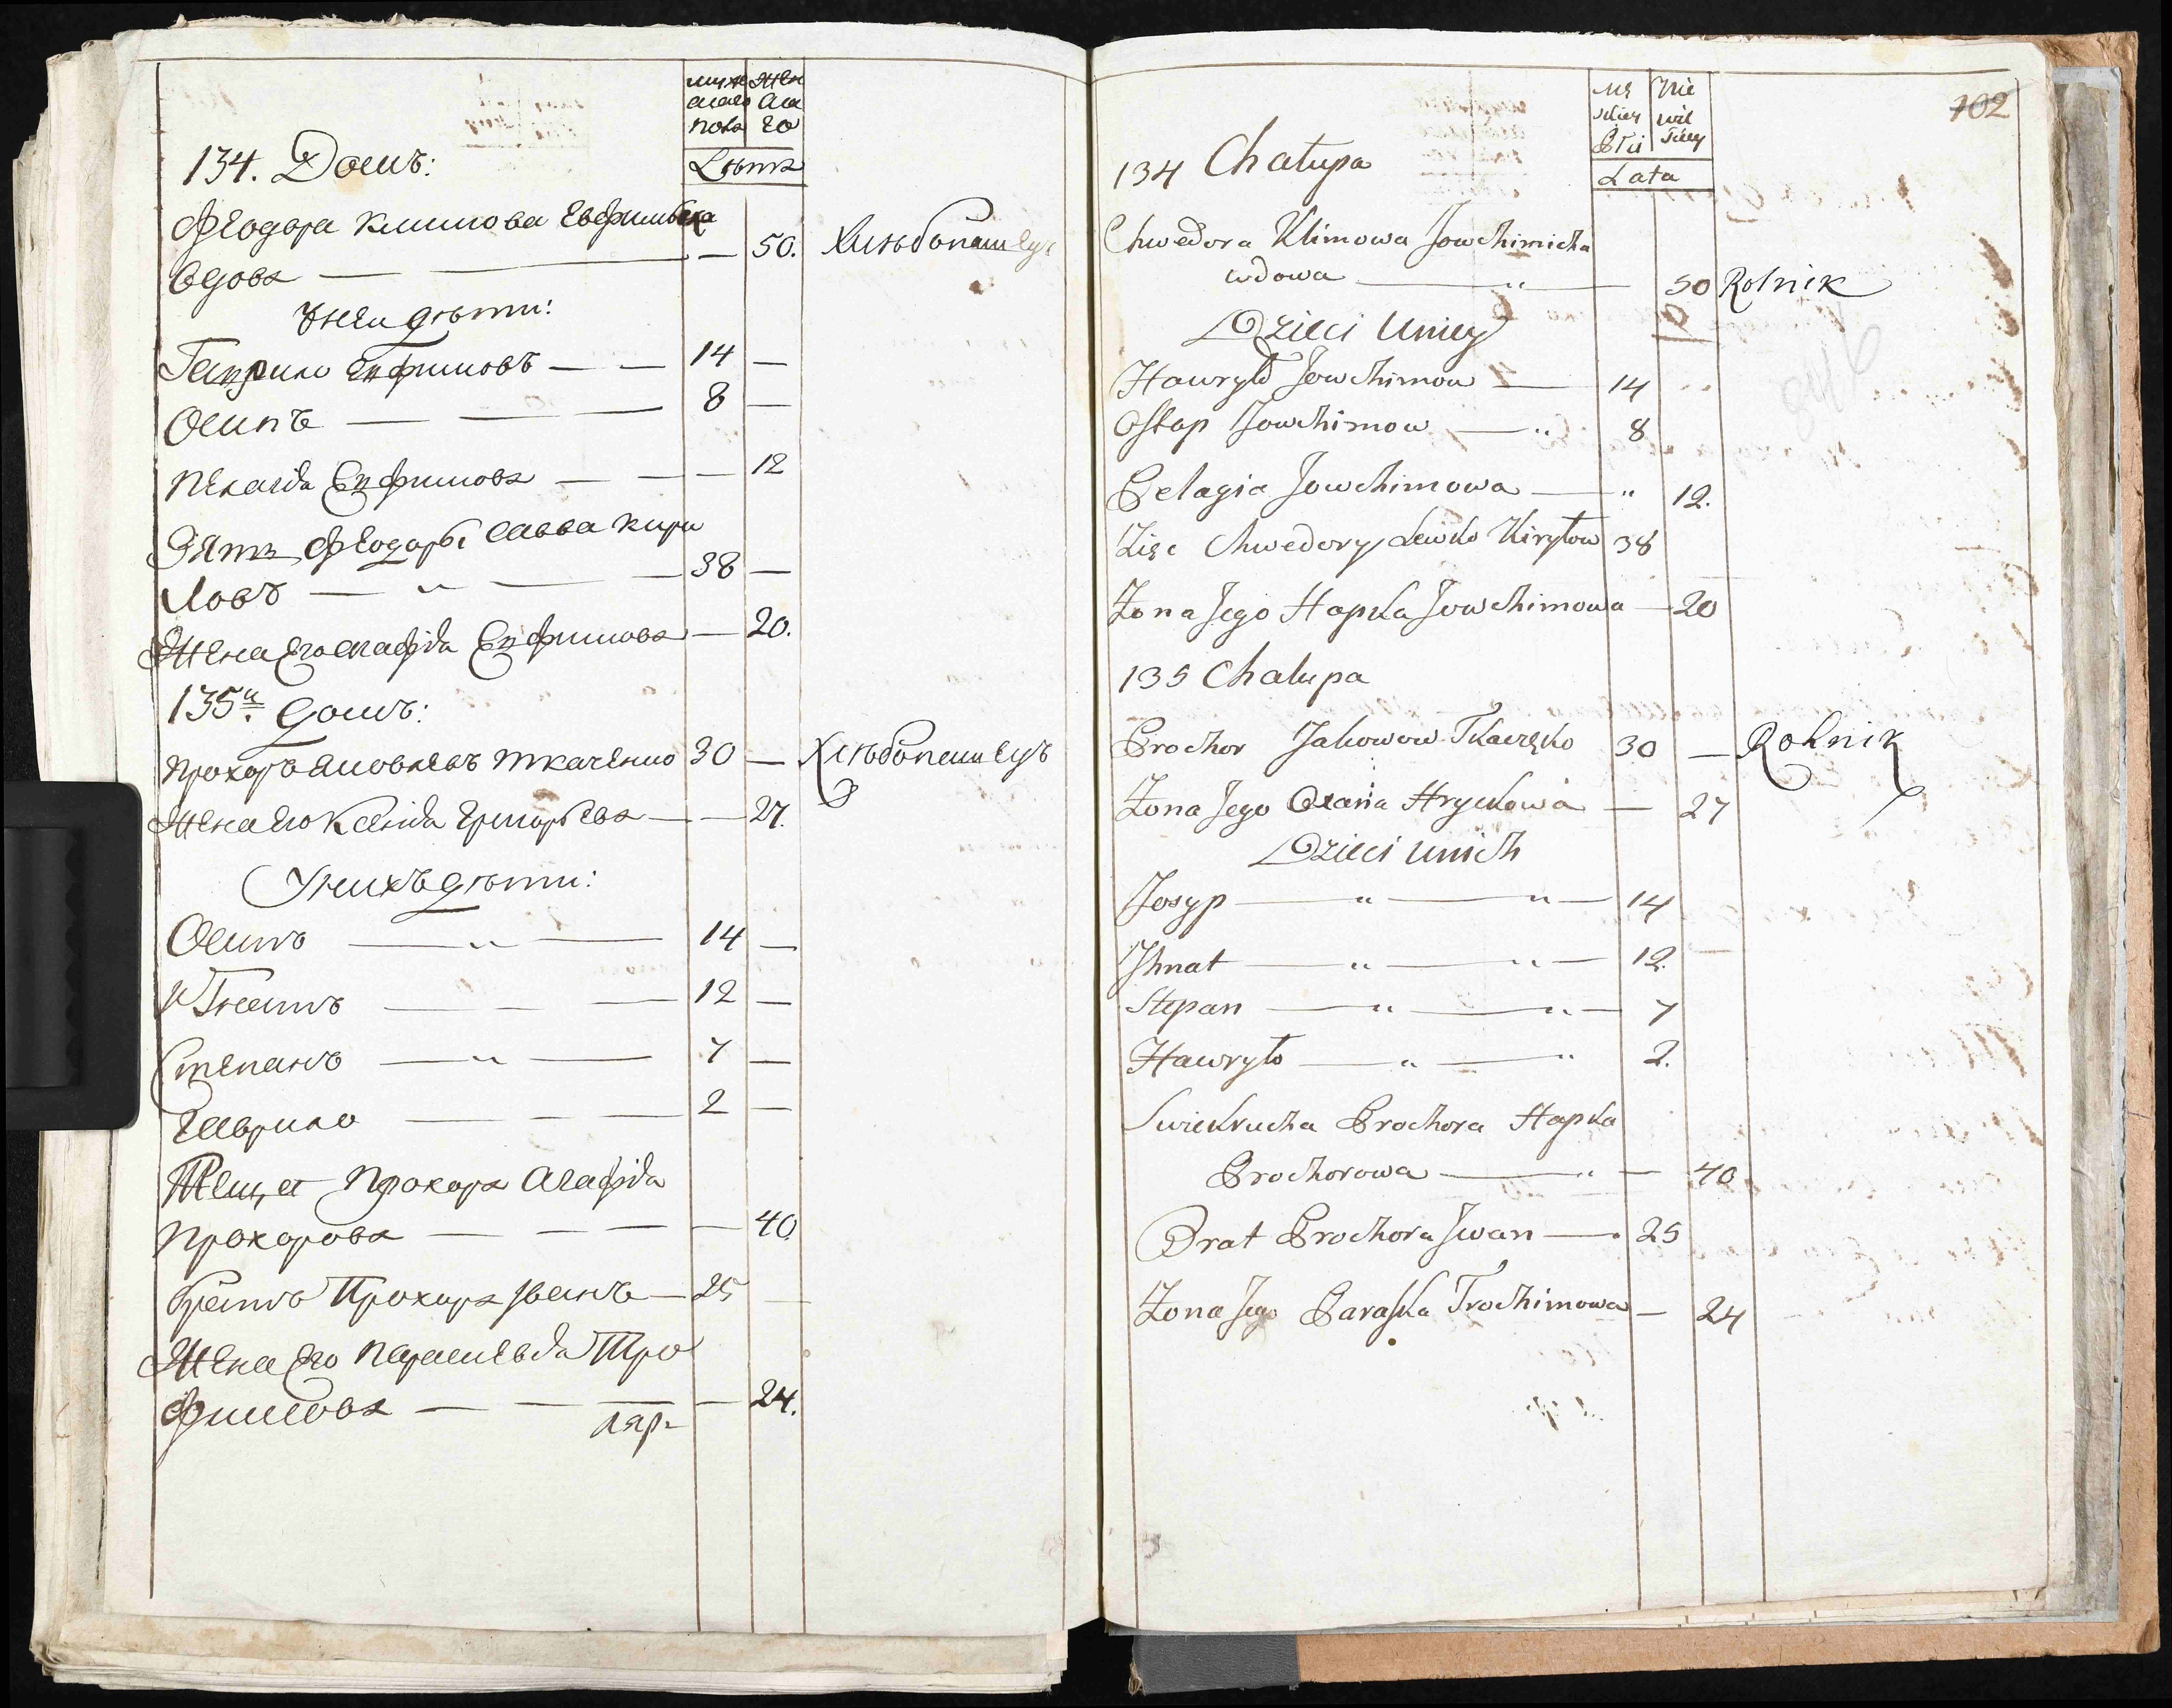 мужескаго пола
женскаго
Лѣта
134. Домъ:
Феодора Климова Евфимиха
вдова — — — 50. Хлѣбопашецъ
У неи дѣти:
Гаврило Евфимовъ — — 14 —
Осипъ — — — 8 —
Пелагіа Евфимова — — — 12
Зять Феодоры Савва Кири
ловъ — " — — 38 —
Жена его Агафіа Евфимова — 20.
135й. домъ:
Прохоръ Яковлевъ Ткаченко 30 — Хлѣбопашецъ
Жена его Ксеніа Григорьева — — 27.
У нихъ дѣти:
Осипъ — " — 14 —
Игнатъ — — — 12 —
Степанъ — " — 7 —
Гаврило — — — 2 —
Теща Прохора Агафіа
Прохорова — — — — 40.
Братъ Прохора Иванъ — 25 —
Жена его Параскевіа Тро
фимова — — — — 24.
102
Lata
134 Chałupa
Chwedora Klimowa Jowchimicha
wdowa — " — 50 Rolnik
Dzieci Uniey
Hawryło Jowchimow — 14
Ostap Jowchimow — " 8
Pelagia Jowchimowa — " 12.
Zięc Chwedory Lewko Kiryłow 38
Zona Jego Hapka Jowchimowa — 20
846
135 Chałupa
Prochor Jakowow Tkaczęko 30 — Rolnik
Zona Jego Oxana Hryckowa — 27
Dzieci unich
Josyp — " — " — 14
Jhnat — " — " — 12.
Stepan — " — " — 7
Hawryło — " — " 2.
Swiekrucha Prochora Hapka
Prochorowa — " — 40
Brat Prochora Jwan — . 25
Zona Jego Paraska Trochimowa — 24